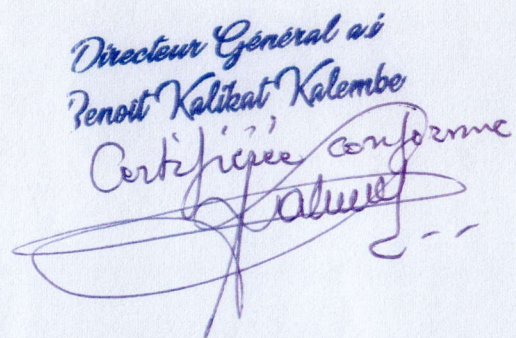 Directeur Général a.i
Benoit Kalikat Kalembe
Certifiée conforme